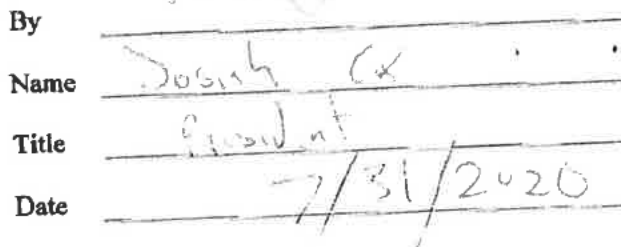 By
Name Josiah Cox
Title President
Date 7/31/2020